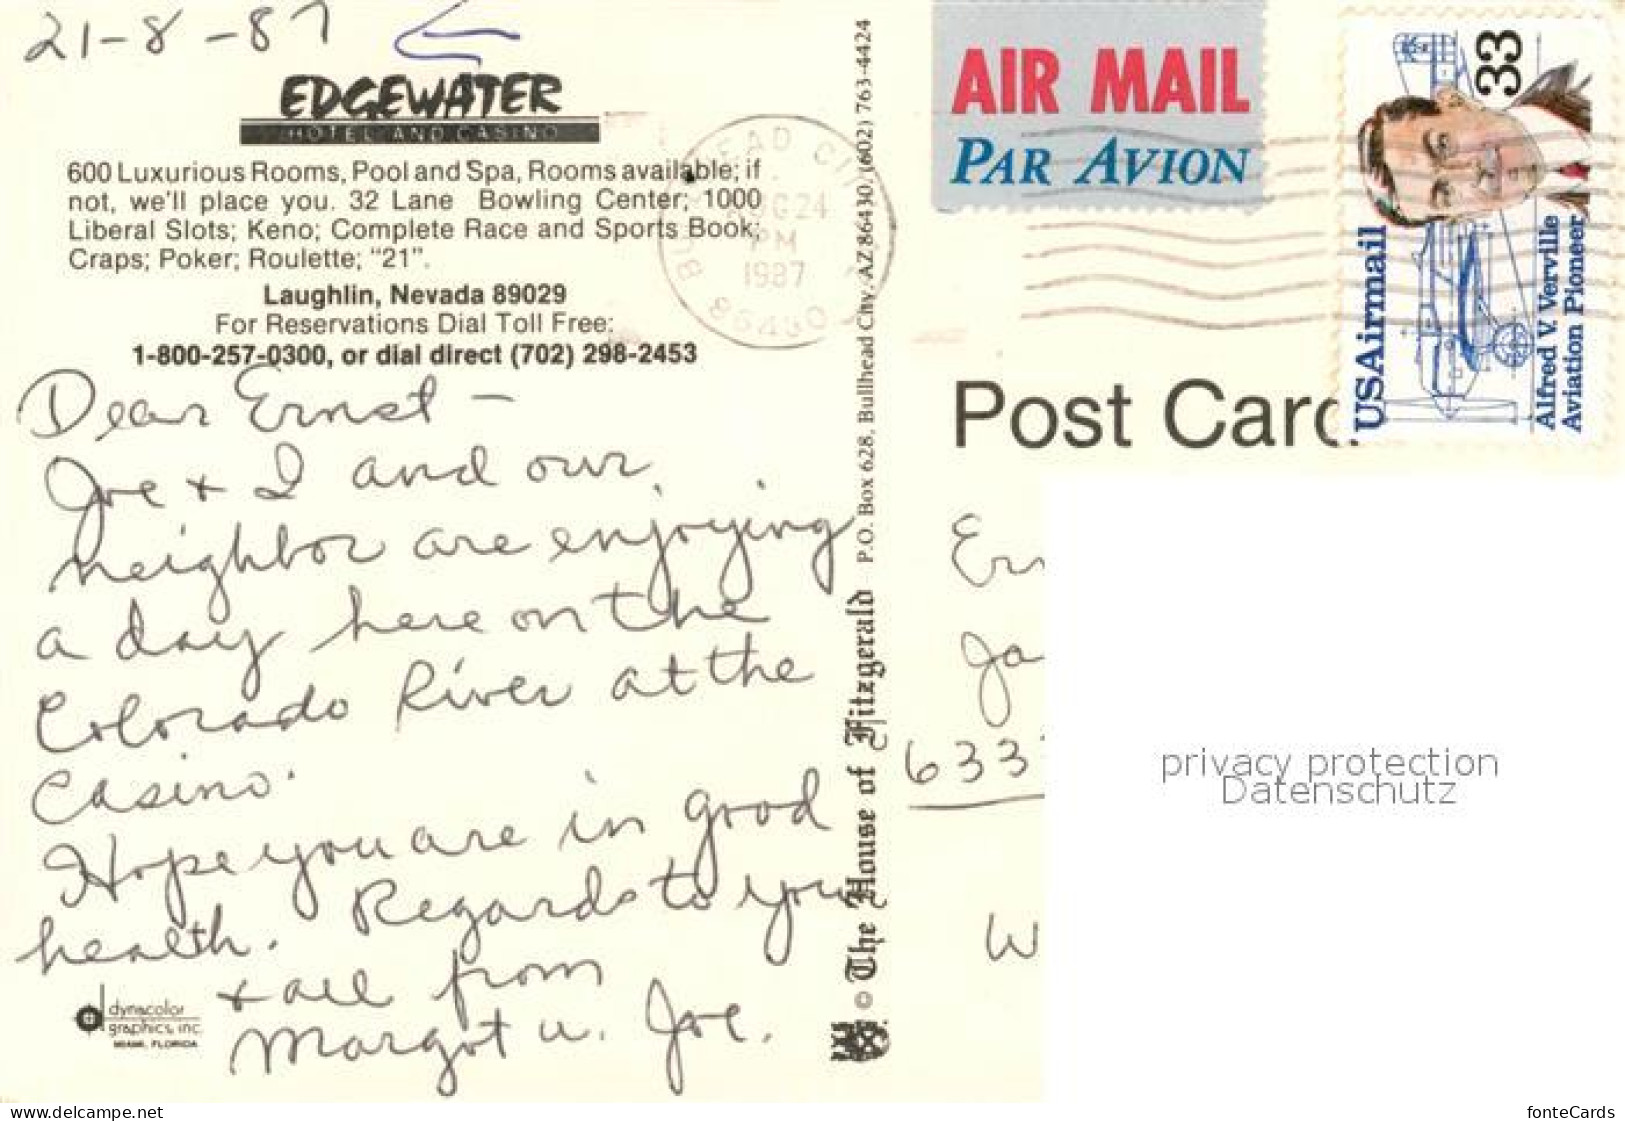 21-8-87
EDGEWATER
HOTEL AND CASINO
600 Luxurious Rooms, Pool and Spa, Rooms available; if
not, we'll place you. 32 Lane Bowling Center; 1000
Liberal Slots; Keno; Complete Race and Sports Book;
Craps; Poker; Roulette; "21".
Laughlin, Nevada 89029
For Reservations Dial Toll Free:
1-800-257-0300, or dial direct (702) 298-2453
Dear Ernst -
Joe + I and our
neighbor are enjoying
a day here on the
Colorado River at the
Casino.
Hope you are in good
health. Regards to you
+ all from
Margot u. Joe.
dynacolor
graphics, inc.
MIAMI, FLORIDA
© The House of Fitzgerald P.O. Box 628, Bullhead City, AZ 86430, (602) 763-4424
AUG 24
PM
1987
86430
AIR MAIL
PAR AVION
33
USAirmail
Alfred V. Verville
Aviation Pioneer
Post Card
Er
Ja
633
W
privacy protection
Datenschutz
www.delcampe.net
fonteCards